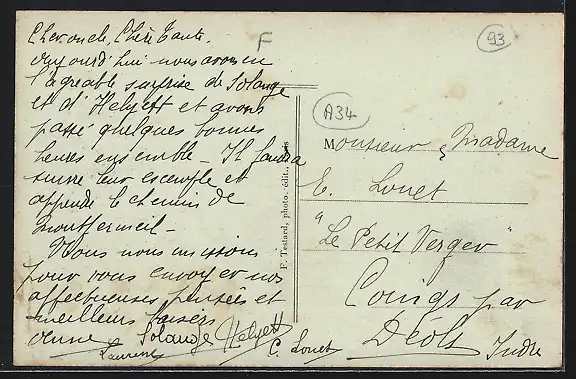 Cher oncle, Chère Tante.
Aujourd'hui nous avons eu
l'agréable surprise de Solange
et d'Helyett et avons
passé quelques bonnes
heures ensemble - Il faudra
suivre leur exemple et
apprendre le chemin de
Montfermeil -
Nous nous unissons
pour vous envoyer nos
affectueuses pensées et
meilleurs baisers
Solange Helyett
Laurent C. Louet
F
93
A34
F. Testard, photo. édit.,
Monsieur & Madame
E. Louet
"Le Petit Verger"
Coings par
Déols
Indre